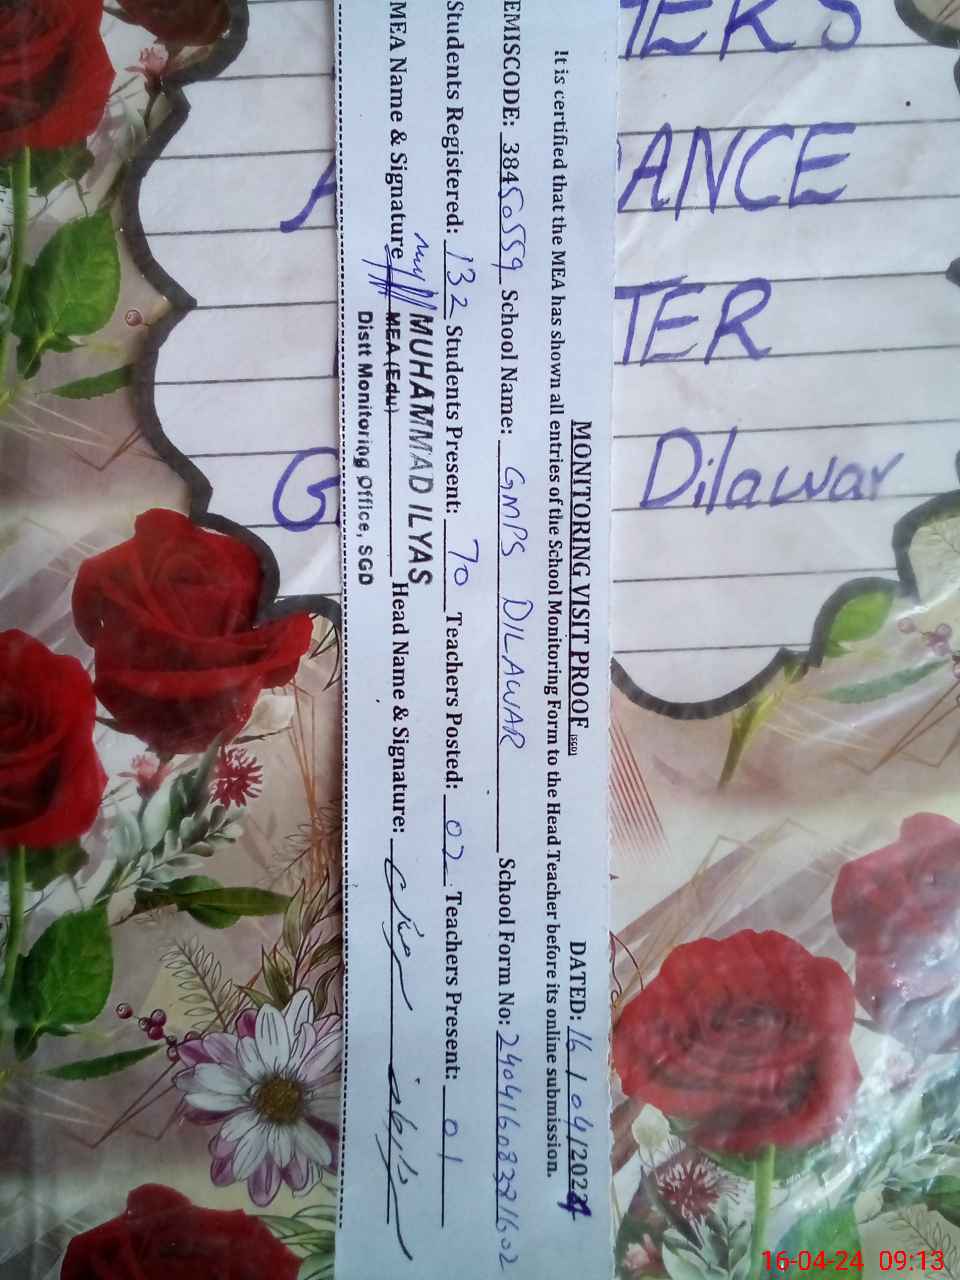 MONITORING VISIT PROOF (SSCO) DATED: 16/04/2024
It is certified that the MEA has shown all entries of the School Monitoring Form to the Head Teacher before its online submission.
EMISCODE: 38450559 School Name: GMPS DILAWAR School Form No: 24041608381602
Students Registered: 132 Students Present: 70 Teachers Posted: 02 Teachers Present: 01
MEA Name & Signature Head Name & Signature:
MUHAMMAD ILYAS
MEA (Edu)
Distt Monitoring Office, SGD
TERS
ANCE
TER
G Dilawar
16-04-24 09:13